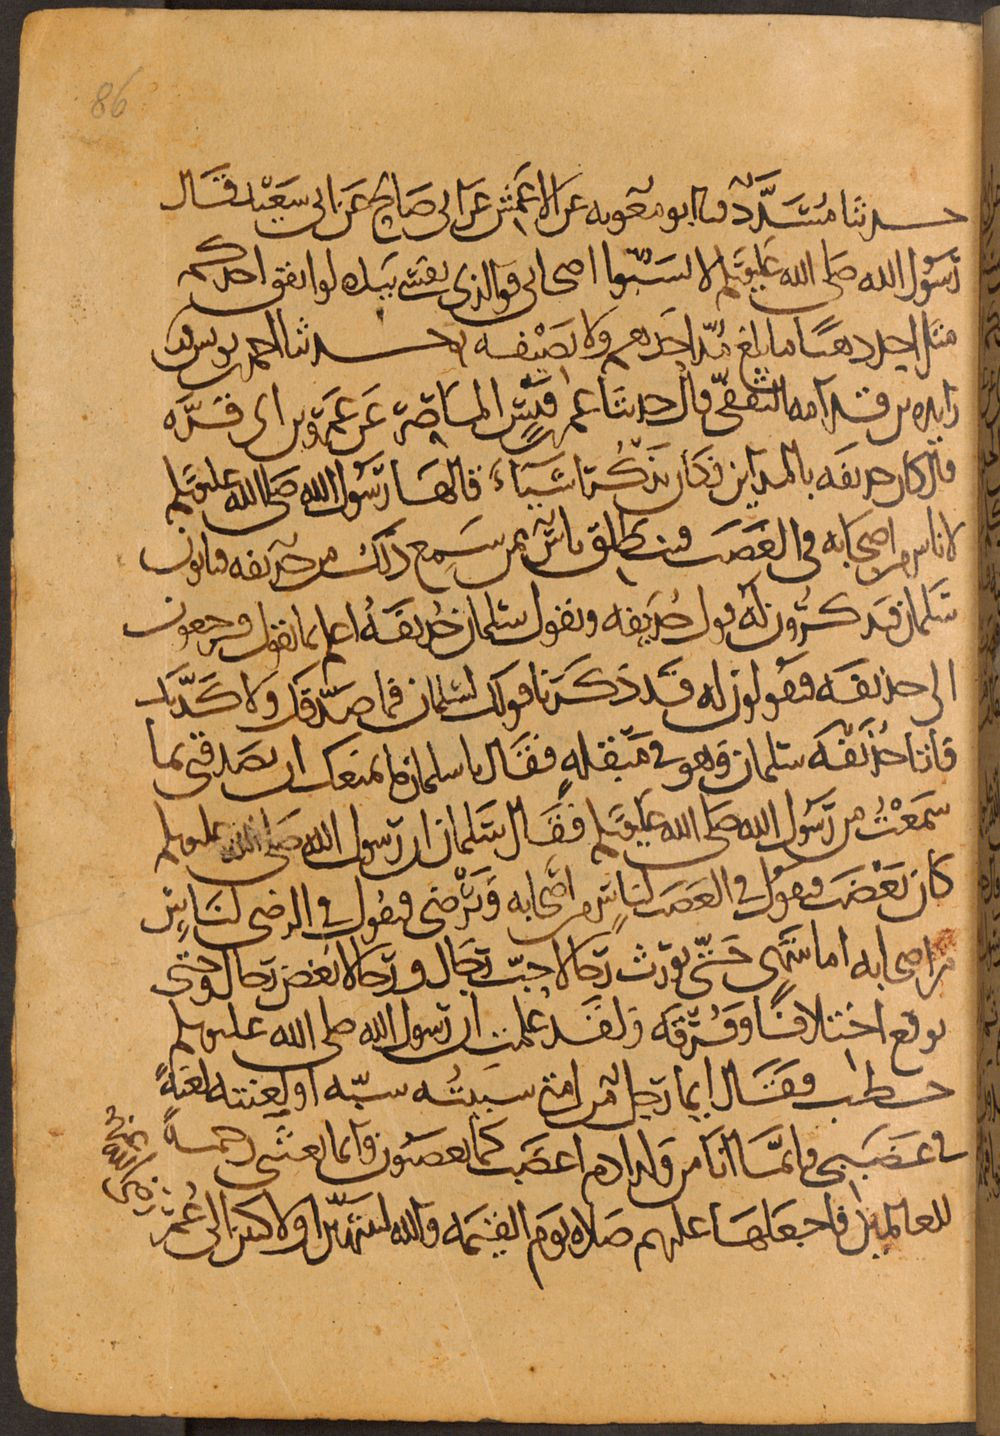 86
حدثنا مسدد نا ابو معوية عن الاعمش عن ابي صالح عن ابي سعيد قال
رسول الله صلى الله عليه وسلم لا تسبوا اصحابي فوالذي نفسي بيده لو انفق احدكم
مثل احد ذهبا ما بلغ مد احدهم ولا نصيفه حدثنا احمد بن يونس نا
زايدة بن قدامة الثقفي قال حدثنا عمر بن قيس الماصر عن عمرو بن ابي قرة
قال كان حذيفة بالمداين فكان يذكر اشياء قالها رسول الله صلى الله عليه وسلم
لاناس من اصحابه في الغضب فينطلق ناس ممن سمع ذلك من حذيفة فياتون
سلمان فيذكرون له قول حذيفة ويقول سلمان حذيفة اعلم بما يقول فيرجعون
الى حذيفة فيقولون له قد ذكرنا قولك لسلمان فما صدقك ولا كذبك
فاتا حذيفة سلمان وهو في مبقلة فقال يا سلمان ما يمنعك ان تصدقني بما
سمعت من رسول الله صلى الله عليه وسلم فقال سلمان ان رسول الله صلى الله عليه وسلم
كان يغضب فيقول في الغضب لناس من اصحابه ويرضى فيقول في الرضى لناس
من اصحابه اما تنتهي حتى تورث رجالا حب رجال ورجالا بغض رجال وحتى
توقع اختلافا وفرقة ولقد علمت ان رسول الله صلى الله عليه وسلم
خطب فقال ايما رجل من امتي سببته سبة او لعنته لعنة
في غضبي فانما انا من ولد ادم اغضب كما يغضبون وانما بعثني رحمة
للعالمين فاجعلها عليهم صلاة يوم القيمة والله لتنتهين او لاكتبن الى عمر
رضي الله عنه